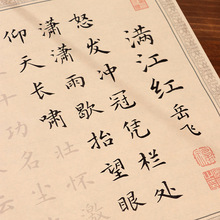 满江红
岳飞
怒发冲冠凭栏处
潇潇雨歇抬望眼
仰天长啸壮怀激
十功名尘